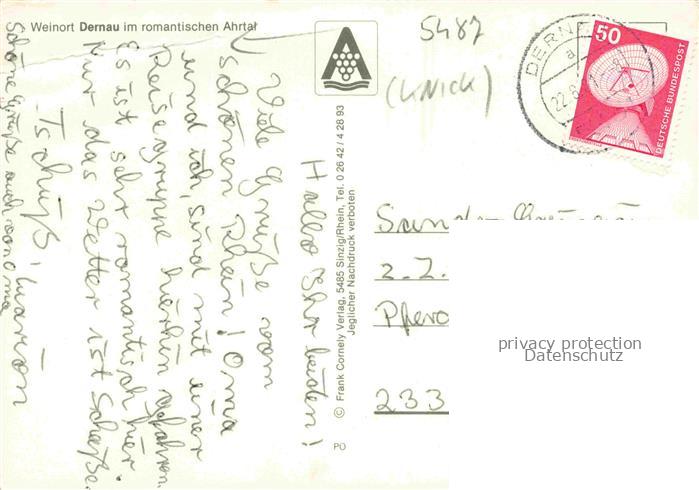 Weinort Dernau im romantischen Ahrtal
Hallo Ihr beiden!
Viele Grüße vom
schönen Rhein! Oma
und ich, sind mit einer
Reisegruppe hierhin gefahren.
Es ist sehr romantisch hier.
Nur das Wetter ist Scheiße.
Tschüß, Marion
Schöne Grüße auch von Oma
© Frank Cornely Verlag, 5485 Sinzig/Rhein, Tel. 0 26 42 / 4 28 93
Jeglicher Nachdruck verboten
PO
5487
(KNICK)
DERNA
a
22.
50
DEUTSCHE BUNDESPOST
z.Z.
Pferd
233
privacy protection
Datenschutz